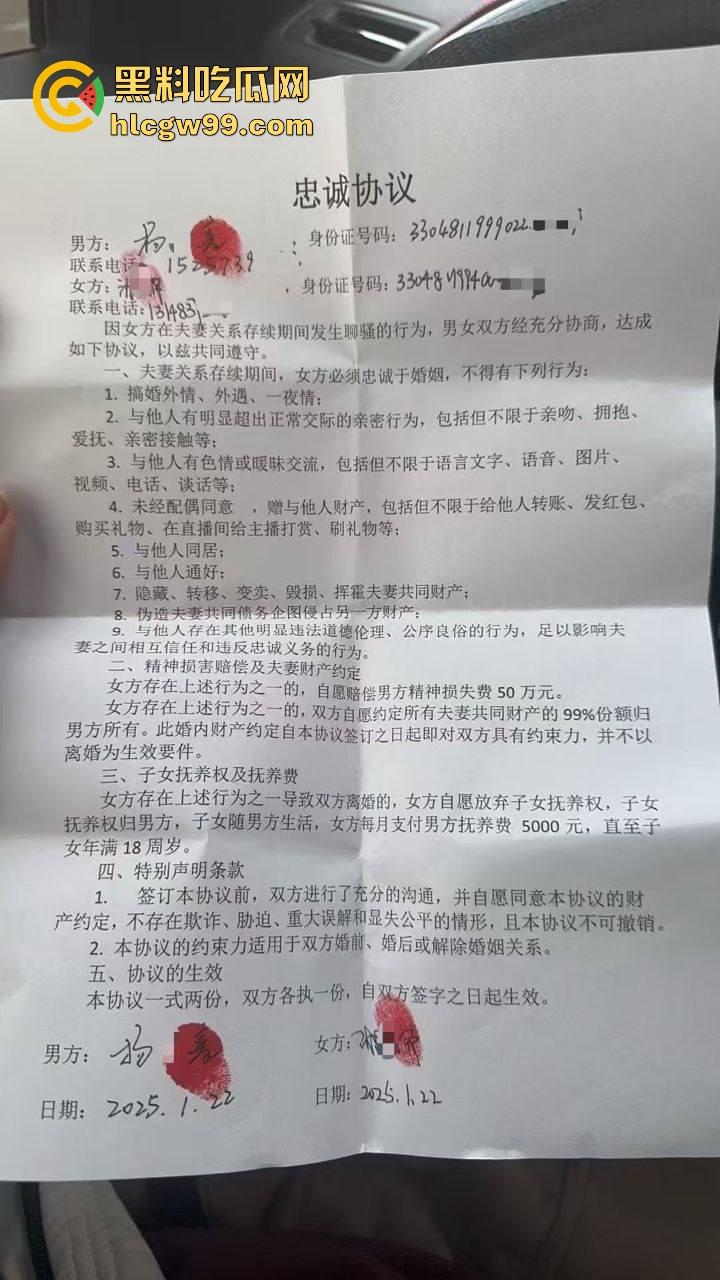 黑料吃瓜网
hlcgw99.com
忠诚协议
男方： 身份证号码：
联系电话 1525739
女方： 身份证号码：
联系电话：
因女方在夫妻关系存续期间发生聊骚的行为，男女双方经充分协商，达成
如下协议，以兹共同遵守。
一、夫妻关系存续期间，女方必须忠诚于婚姻，不得有下列行为：
1. 搞婚外情、外遇、一夜情；
2. 与他人有明显超出正常交际的亲密行为，包括但不限于亲吻、拥抱、
爱抚、亲密接触等；
3. 与他人有色情或暧昧交流，包括但不限于语言文字、语音、图片、
视频、电话、谈话等；
4. 未经配偶同意 ，赠与他人财产，包括但不限于给他人转账、发红包、
购买礼物、在直播间给主播打赏、刷礼物等；
5. 与他人同居；
6. 与他人通好；
7. 隐藏、转移、变卖、毁损、挥霍夫妻共同财产；
8. 伪造夫妻共同债务企图侵占另一方财产；
9. 与他人存在其他明显违法道德伦理、公序良俗的行为，足以影响夫
妻之间相互信任和违反忠诚义务的行为。
二、精神损害赔偿及夫妻财产约定
女方存在上述行为之一的，自愿赔偿男方精神损失费 50 万元。
女方存在上述行为之一的，双方自愿约定所有夫妻共同财产的 99%份额归
男方所有。此婚内财产约定自本协议签订之日起即对双方具有约束力，并不以
离婚为生效要件。
三、子女抚养权及抚养费
女方存在上述行为之一导致双方离婚的，女方自愿放弃子女抚养权，子女
抚养权归男方，子女随男方生活，女方每月支付男方抚养费 5000 元，直至子
女年满 18 周岁。
四、特别声明条款
1. 签订本协议前，双方进行了充分的沟通，并自愿同意本协议的财
产约定，不存在欺诈、胁迫、重大误解和显失公平的情形，且本协议不可撤销。
2. 本协议的约束力适用于双方婚前、婚后或解除婚姻关系。
五、协议的生效
本协议一式两份，双方各执一份，自双方签字之日起生效。
男方：杨 女方：
日期：2025.1.22 日期：2025.1.22